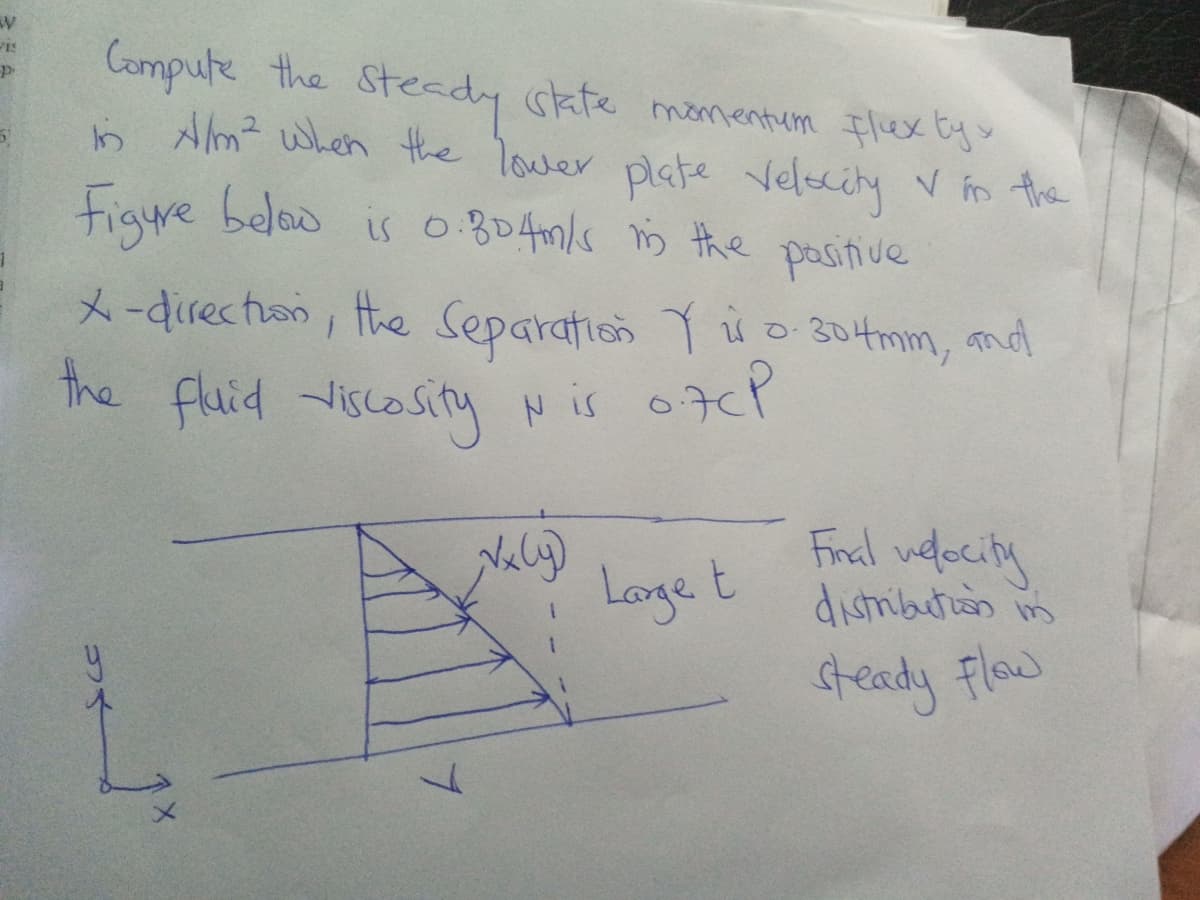 Compute the steady state momentum flux τyx
in N/m² when the lower plate velocity V in the
Figure below is 0.304m/s in the positive
x-direction, the separation Y is 0.304mm, and
the fluid viscosity μ is 0.7cP
Vx(y)
Large t
Final velocity
distribution in
steady flow
y
x
V